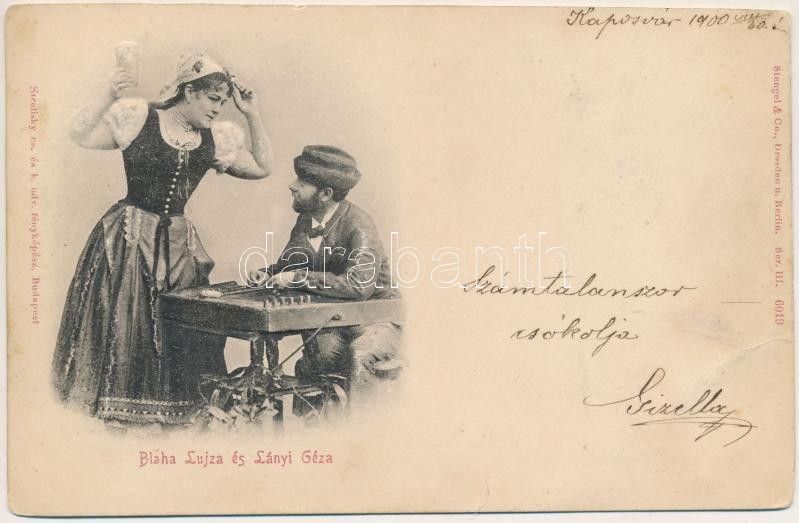 Kaposvár 1900 VIII/30.
Strelisky cs. és k. udv. fényképész, Budapest
Stengel & Co., Dresden u. Berlin. Ser. III. 6019
darabanth
Számtalanszor
csókolja
Gizella
Blaha Lujza és Lányi Géza